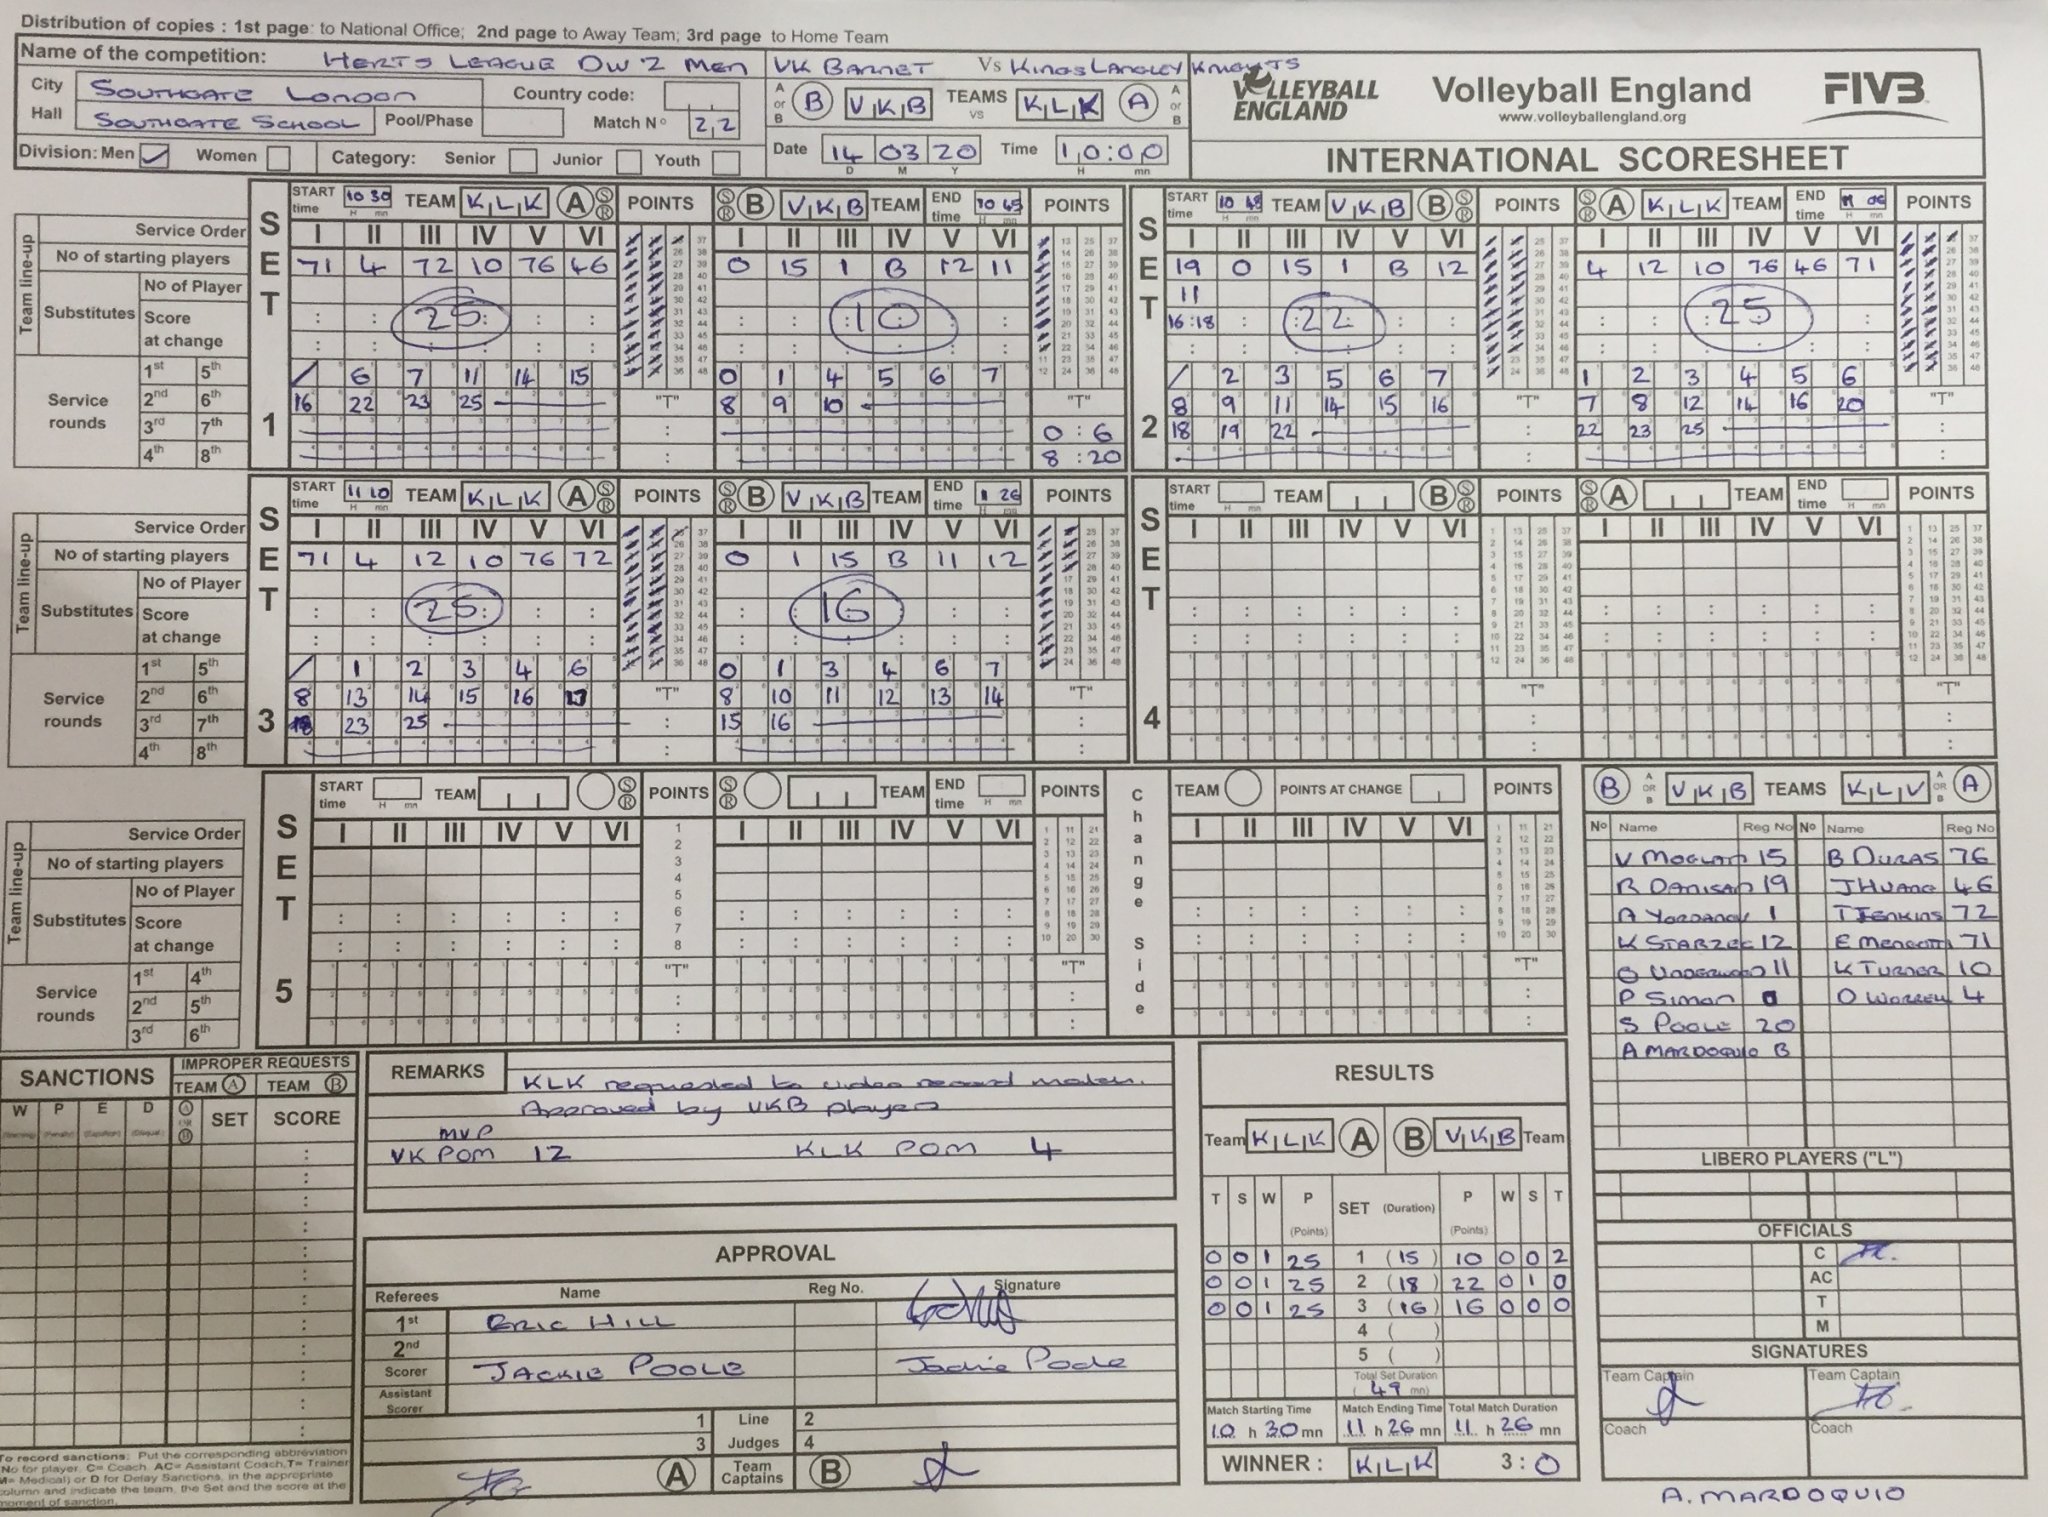 Distribution of copies : 1st page: to National Office; 2nd page to Away Team; 3rd page to Home Team
Name of the competition: HERTS LEAGUE DIV 2 MEN
VK BARNET Vs KINGS LANGLEY KNIGHTS
City SOUTHGATE LONDON Country code:
Hall SOUTHGATE SCHOOL Pool/Phase Match Nº 22
A or B B VKB TEAMS vs KLK A A or B
Date 14 03 20 Time 10:00
D M Y H mn
Division: Men ✓ Women Category: Senior Junior Youth
VOLLEYBALL ENGLAND
Volleyball England
www.volleyballengland.org
FIVB
INTERNATIONAL SCORESHEET
SET 1
START time 10 30 TEAM KLK A S R POINTS
S R B VKB TEAM END time 10 45 POINTS
Team line-up
Service Order I II III IV V VI I II III IV V VI
No of starting players 71 4 72 10 76 46 0 15 1 B 12 11
Substitutes No of Player
Score at change
25 10
Service rounds
1st 5th / 6 7 11 14 15 0 1 4 5 6 7
2nd 6th 16 22 23 25 "T" 8 9 10 "T"
3rd 7th : 0 : 6
4th 8th : 8 : 20
SET 2
START time 10 48 TEAM VKB B S R POINTS
S R A KLK TEAM END time 11 06 POINTS
I II III IV V VI I II III IV V VI
19 0 15 1 B 12 4 12 10 76 46 71
11
16:18 22 25
/ 2 3 5 6 7 1 2 3 4 5 6
8 9 11 14 15 16 "T" 7 8 12 14 16 20 "T"
18 19 22 22 23 25
SET 3
START time 11 10 TEAM KLK A S R POINTS
S R B VKB TEAM END time 26 POINTS
Team line-up
Service Order I II III IV V VI I II III IV V VI
No of starting players 71 4 12 10 76 72 0 1 15 B 11 12
Substitutes No of Player
Score at change
25 16
Service rounds
1st 5th / 1 2 3 4 6 0 1 3 4 6 7
2nd 6th 8 13 14 15 16 17 "T" 8 10 11 12 13 14 "T"
3rd 7th 18 23 25 15 16
4th 8th
SET 4
START time TEAM B S R POINTS
S R A TEAM END time POINTS
I II III IV V VI I II III IV V VI
"T" "T"
SET 5
START time H mn TEAM S R POINTS
S R TEAM END time H mn POINTS
Change Side
TEAM POINTS AT CHANGE POINTS
Team line-up
Service Order I II III IV V VI I II III IV V VI I II III IV V VI
No of starting players
Substitutes No of Player
Score at change
Service rounds
1st 4th "T" "T" "T"
2nd 5th
3rd 6th
B A OR B VKB TEAMS KLV A OR B A
Nº Name Reg No Nº Name Reg No
15 B DURAS 76
19 J HUANG 46
A YORDANOV 1 T JENKINS 72
K STARZEC 12 71
O UNDERWOOD 11 K TURNER 10
P SIMON 0 O WARREN 4
S POOLE 20
A MARDOQUIO B
LIBERO PLAYERS ("L")
OFFICIALS
C
AC
T
M
SIGNATURES
Team Captain Team Captain
Coach Coach
A. MARDOQUIO
SANCTIONS
IMPROPER REQUESTS
TEAM A TEAM B
W P E D A OR B SET SCORE
To record sanctions: Put the corresponding abbreviation
No for player, C= Coach, AC= Assistant Coach, T= Trainer
M= Medical) or D for Delay Sanctions, in the appropriate
column and indicate the team, the Set and the score at the
moment of sanction.
REMARKS
KLK requested to video record match.
Approved by VKB players
MVP
VK POM 12 KLK POM 4
APPROVAL
Referees Name Reg No. Signature
1st ERIC HILL
2nd
Scorer JACKIE POOLE Jackie Poole
Assistant Scorer
1 Line 2
3 Judges 4
A Team Captains B
RESULTS
Team KLK A B VKB Team
T S W P (Points) SET (Duration) P (Points) W S T
0 0 1 25 1 (15) 10 0 0 2
0 0 1 25 2 (18) 22 0 1 0
0 0 1 25 3 (16) 16 0 0 0
4 ( )
5 ( )
Total Set Duration
( 49 mn)
Match Starting Time Match Ending Time Total Match Duration
10 h 30 mn 11 h 26 mn 11 h 26 mn
WINNER : KLK 3 : 0